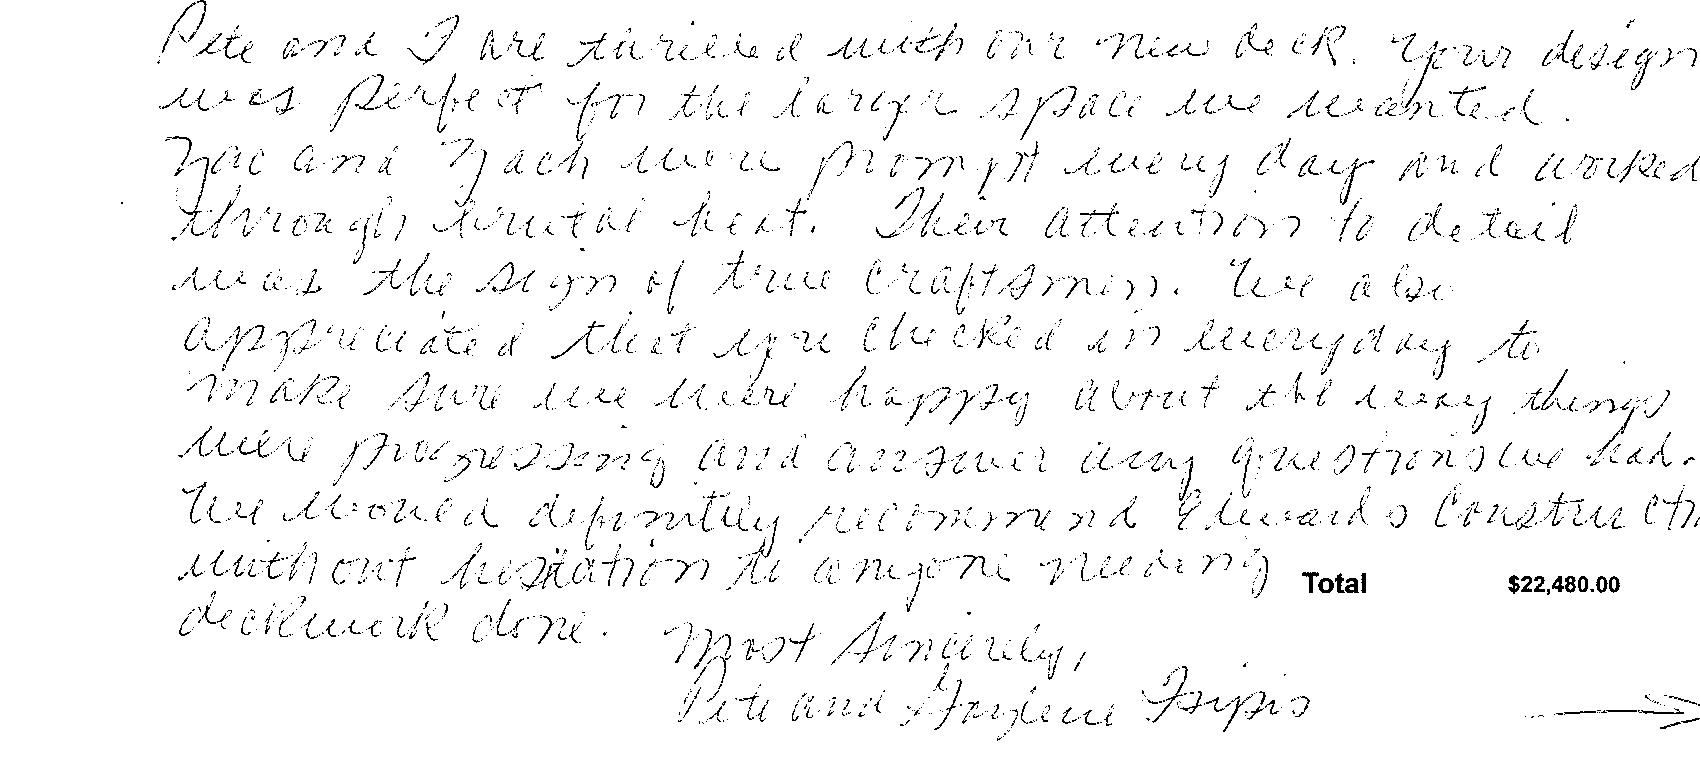 Pete and I are thrilled with our new deck. Your design
was perfect for the larger space we wanted.
Zac and Zach were prompt every day and worked
through brutal heat. Their attention to detail
was the sign of true craftsmen. We also
appreciated that you checked in everyday to
make sure we were happy about the way things
were progressing and answer any questions we had.
We would definitely recommend Edwards Constructn
without hesitation to anyone needing
Total $22,480.00
deckwork done.
Most Sincerely,
Pete and Gaylene Tsipis